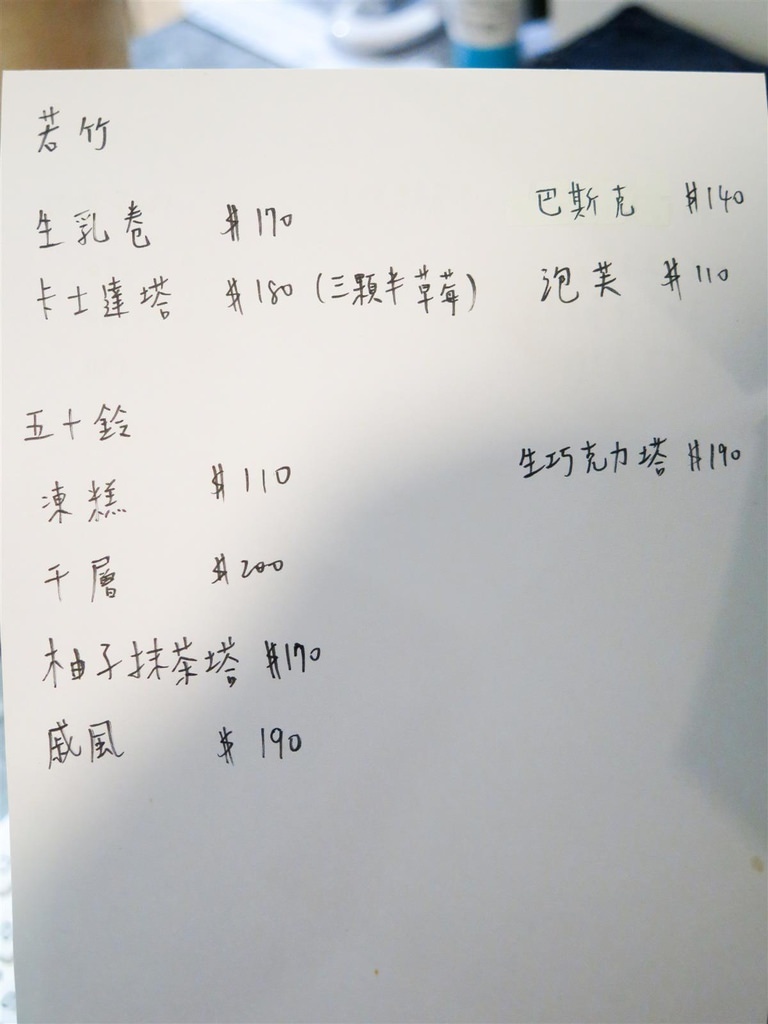 若竹
生乳卷 $170 巴斯克 $140
卡士達塔 $180 (三顆半草莓) 泡芙 $110
五十鈴
凍糕 $110 生巧克力塔 $190
千層 $200
柚子抹茶塔 $170
戚風 $190